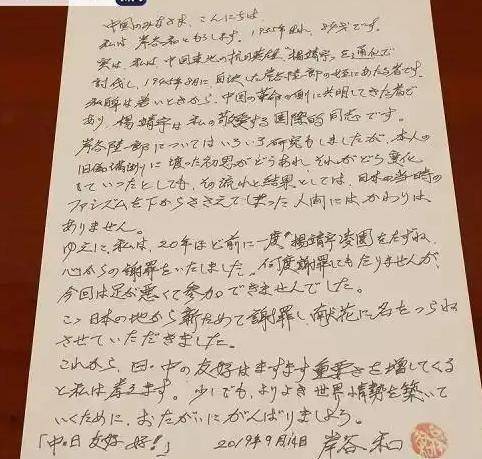 中国のみなさま、こんにちは
私は岸谷和ともうします。1935年生れ、84才です。
実は、私は中国東北の抗日英雄"楊靖宇"を通化で
討伐し、1945年8月に自決した岸谷隆一郎の姪にあたる者です。
私自身は若いときから、中国の革命の側に共鳴してきた者で
あり、楊靖宇は私の敬愛する国際的同志です。
岸谷隆一郎についてはいろいろ研究もしましたが、本人の
旧満洲に渡った初男がどうあれ、それがどう変化
していったとしても、その流れと結果としては、日本の当時の
ファシズムを下からささえてしまった人間にはかわりは
ありません。
ゆえに、私は、20年ほど前に一度"楊靖宇凌園をたずね、
心からの謝罪をいたしました。何度謝罪してもたりませんが、
今回は足が悪くて参加できませんでした。
この日本の地から新ためて謝罪し、献花に名をつらね
させていただきました。
これから、日・中の友好はますます重要さを増してくる
と私は考えます。少しでも、よりよき世界情勢を築いて
いくために、おたがいにがんばりましょう。
「中・日友好好!」 2019年9月14日 岸谷和